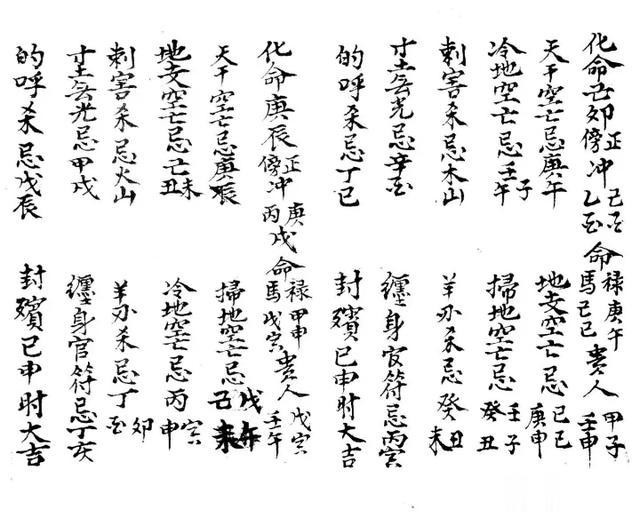 化命己卯正傍冲己酉乙酉命禄庚午馬己巳貴人甲子壬申
天干空亡忌庚午 地支空亡忌己巳庚申
冷地空亡忌壬子午 掃地空亡忌壬子癸丑
刺害杀忌木山 羊刃杀忌癸丑未
寸土無光忌辛酉 纏身官符忌丙寅
的呼杀忌丁巳 封殯巳申时大吉
化命庚辰正傍冲庚戌丙戌命禄甲申馬戊寅貴人戊寅壬午
天干空亡忌庚辰 掃地空亡忌戊午己未
地支空亡忌丑未 冷地空亡忌丙寅申
刺害杀忌火山 羊刃杀忌丁卯酉
寸土無光忌甲戌 纏身官符忌丁亥
的呼杀忌戊辰 封殯巳申时大吉